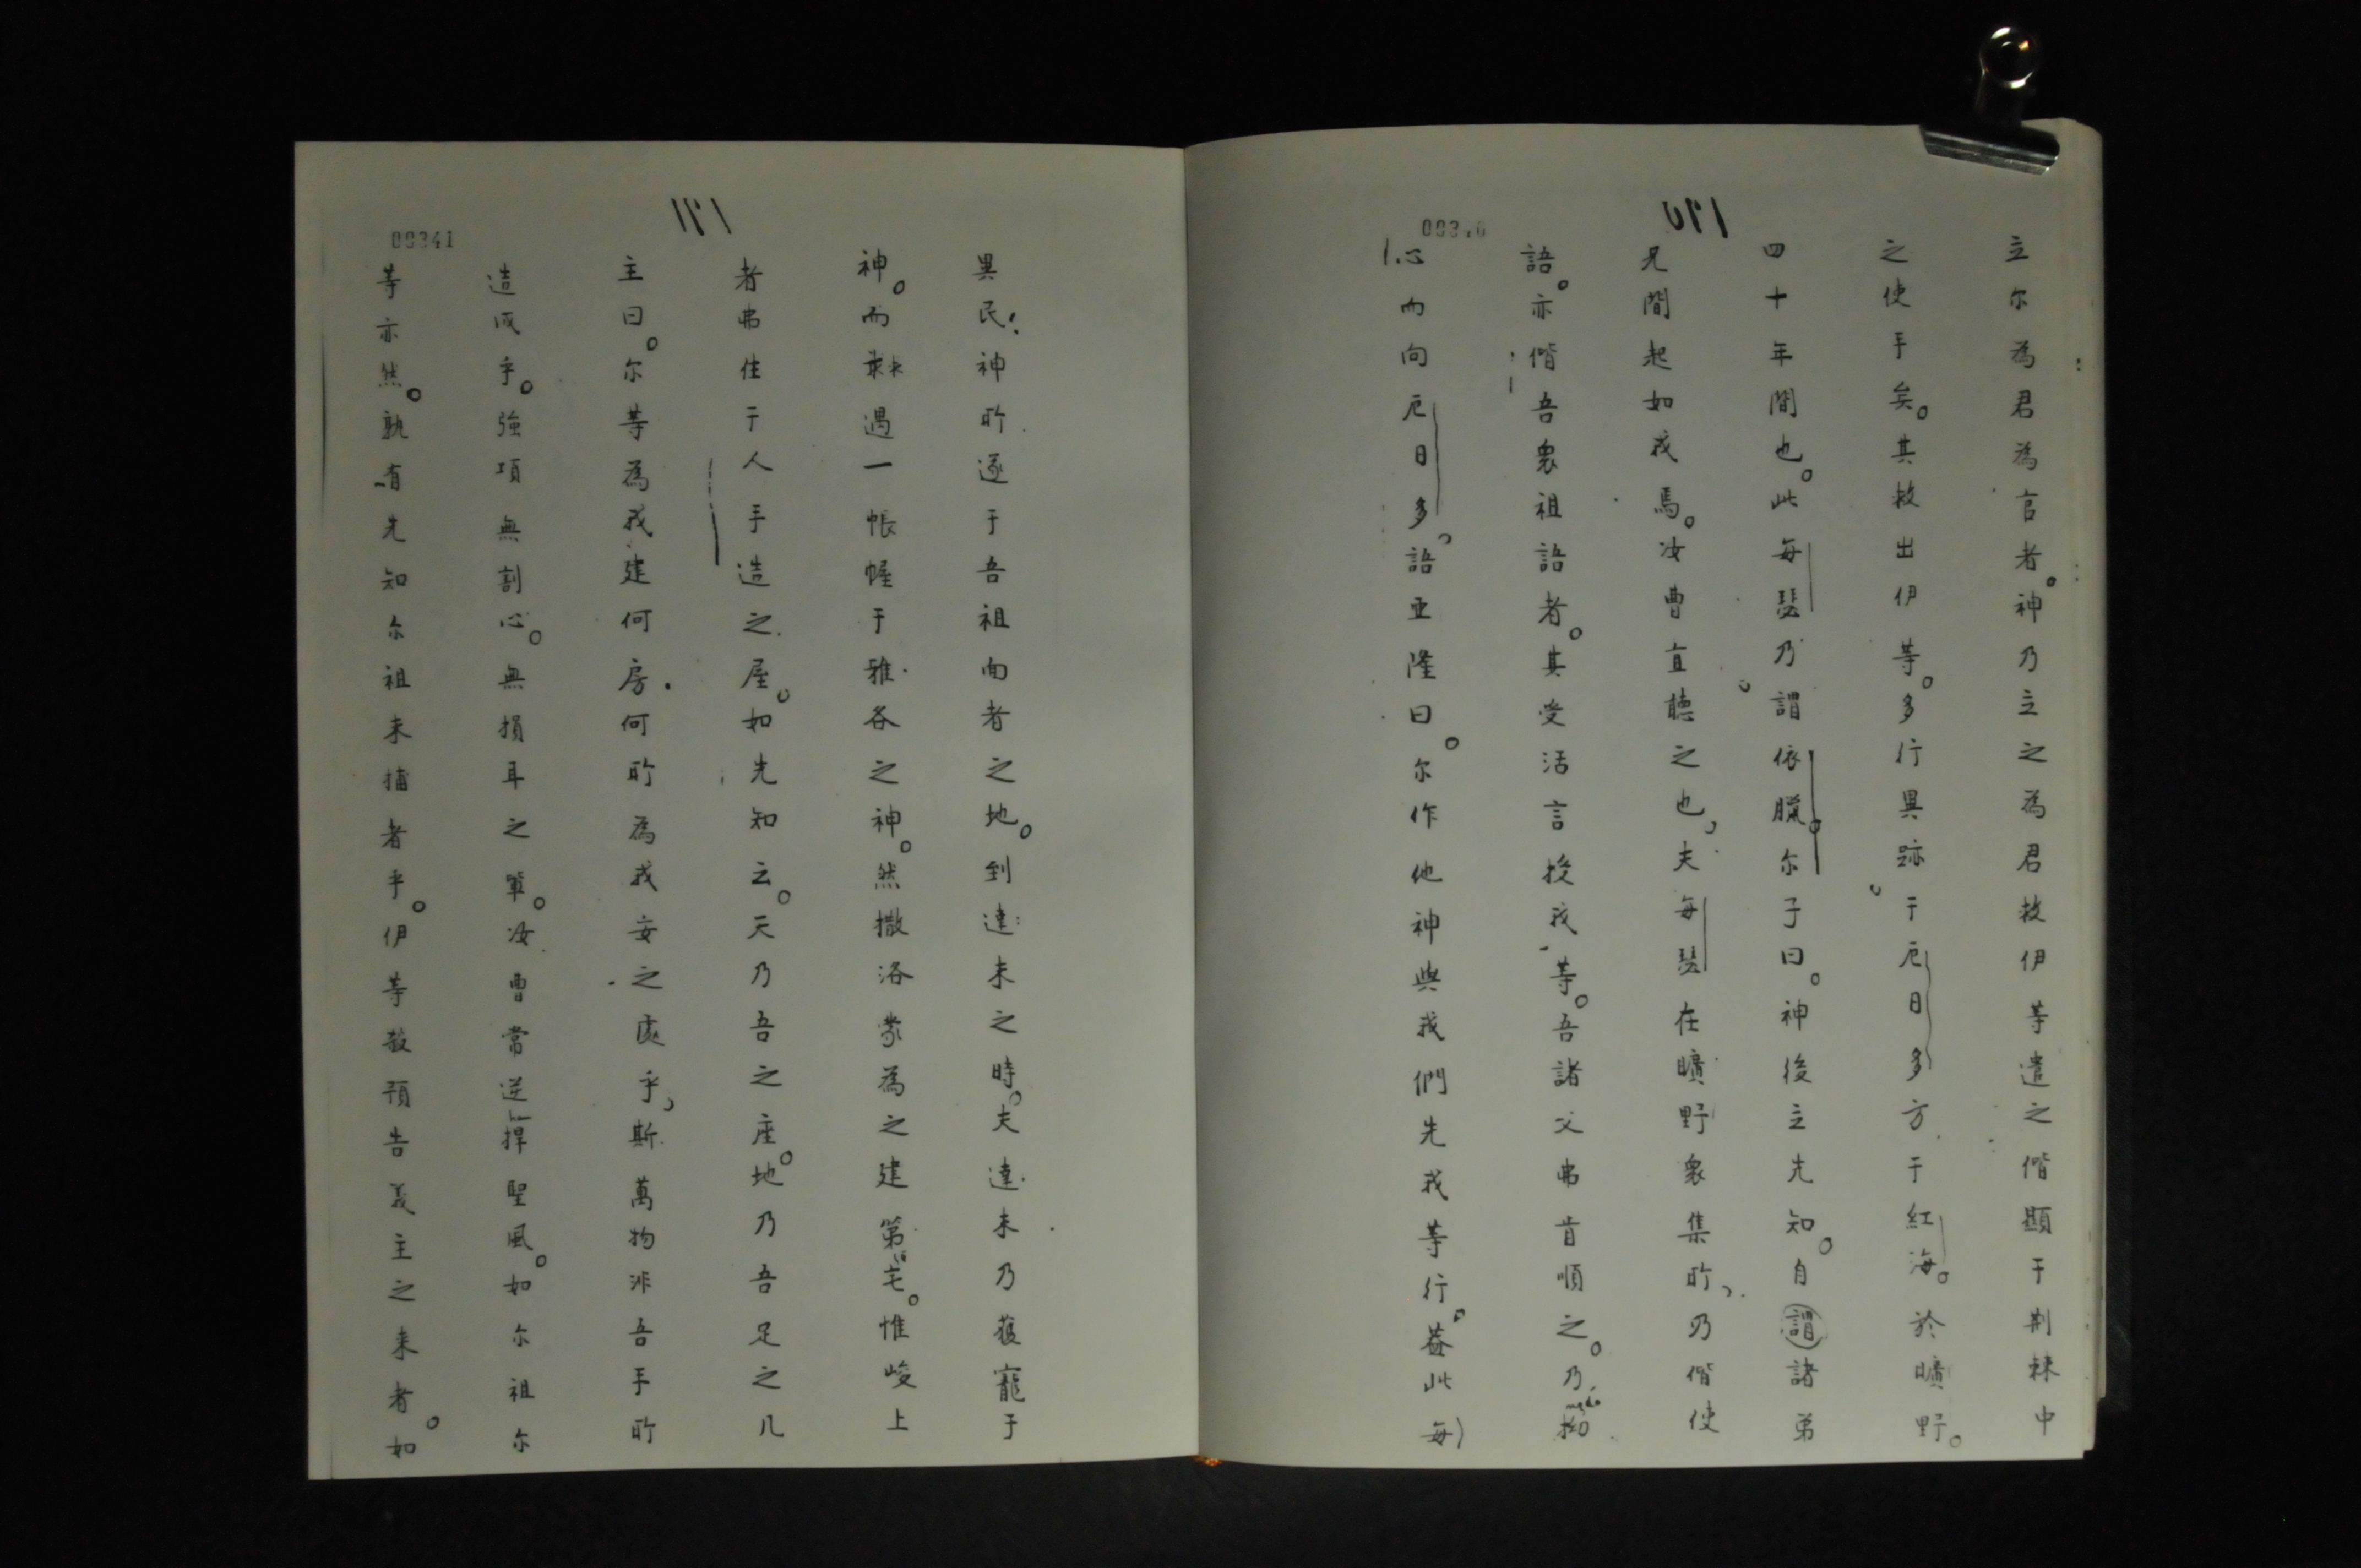 立尔為君為官者。神乃立之為君救伊等遣之偕顯于荆棘中
之使手矣。其救出伊等。多行異跡于厄日多方于紅海。於曠野。
四十年間也。此每瑟乃謂依臘尔子曰。神後立先知。自謂諸弟
兄間起如我焉。汝曹直聽之也，夫每瑟在曠野衆集所，乃偕使
語。亦偕吾衆祖語者。其受活言授我等。吾諸父弗肯順之。乃拗
心而向厄日多，語亚隆曰。尔作他神與我們先我等行。蓋此每
00341
異民，神所逐于吾祖面者之地。到達未之時。夫達未乃獲寵于
神。而冧遇一帳幄于雅各之神。然撒洛蒙為之建第宅。惟峻上
者弗住于人手造之屋。如先知云。天乃吾之座。地乃吾足之几
主曰。尔等為我建何房．何所為我安之處乎，斯萬物非吾手所
造成乎。強項無割心。無損耳之輩。汝曹常逆捍聖風。如尔祖尔
等亦然。孰有先知尔祖未捕者乎。伊等敢預告義主之来者。如